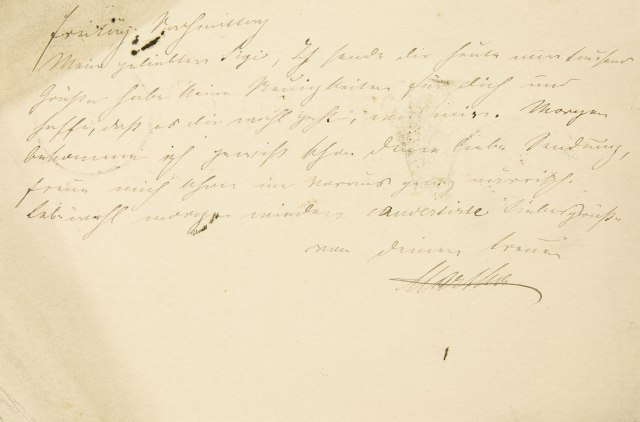 Freitag, Nachmittag
Mein geliebter Sigi, Ich sende dir heute nur tausend
Grüße habe keine Neuigkeiten für dich und
hoffe, daß es dir wohl geht, wie mir. Morgen
bekomme ich gewiß schon deine liebe Sendung,
freue mich schon im voraus ganz närrisch.
Lebewohl morgen wieder couvertirte Liebesgrüße
von deiner treuen
Martha